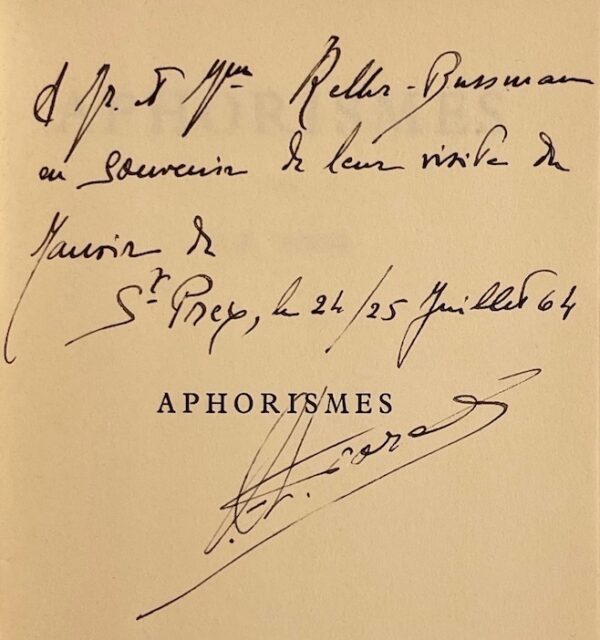 à Mr. et Mme Keller-Bussmann
en souvenir de leur visite du
Manoir de
St Prex, le 24/25 Juillet 64
APHORISMES